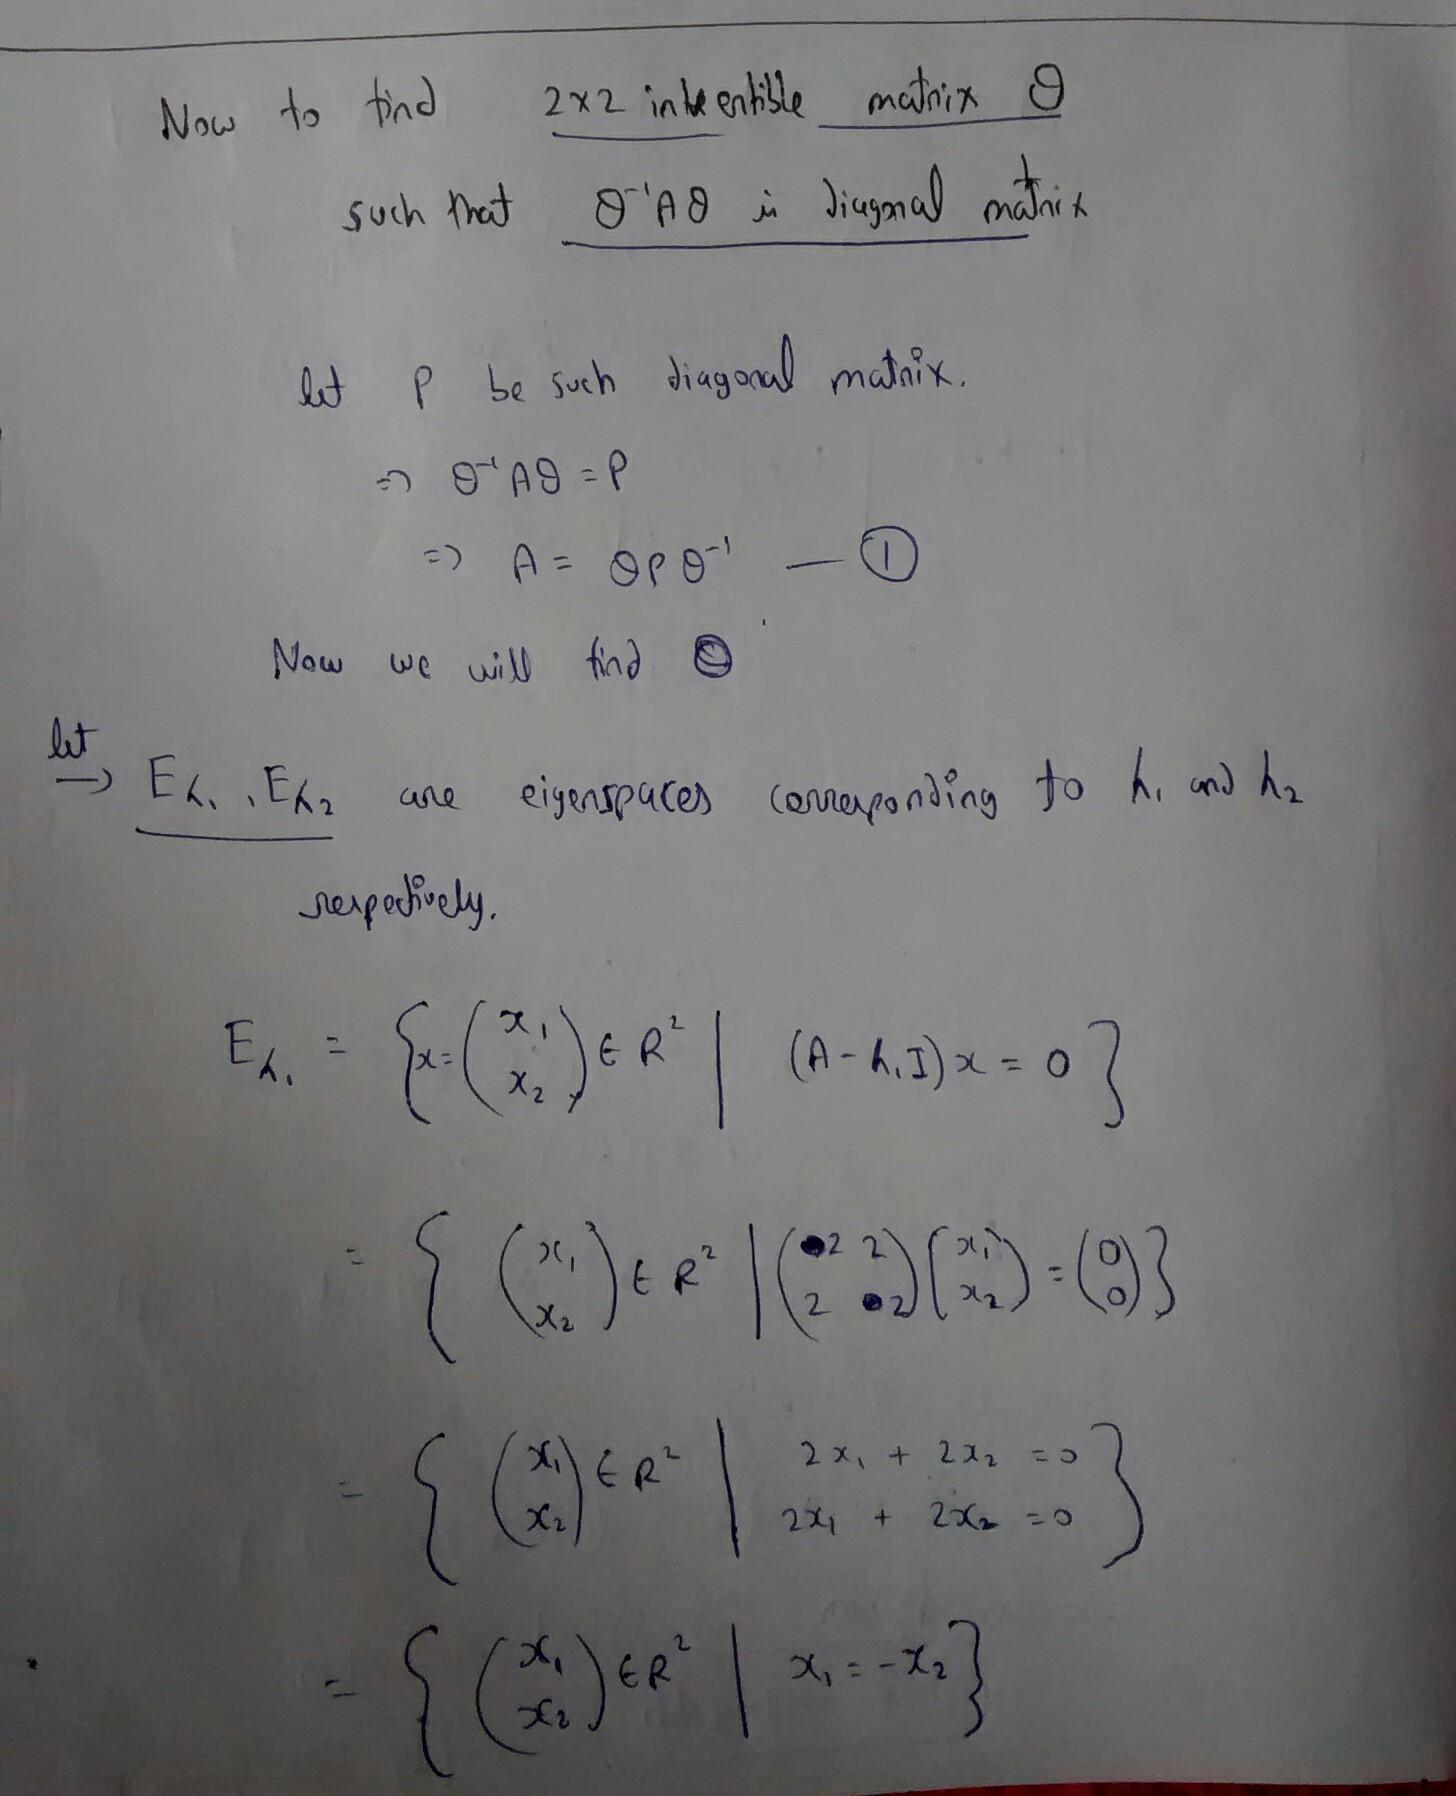 Now to find 2×2 invertible matrix θ
such that θ⁻¹Aθ is diagonal matrix
let P be such diagonal matrix.
=> θ⁻¹Aθ = P
=> A = θPθ⁻¹ — ①
Now we will find θ
let
→ Eλ₁, Eλ₂ are eigenspaces corresponding to λ₁ and λ₂
respectively.
Eλ₁ = {x = (x₁ x₂) ∈ R² | (A - λ₁I)x = 0}
= {(x₁ x₂) ∈ R² | (2 2 2 2)(x₁ x₂) = (0 0)}
= {(x₁ x₂) ∈ R² | 2x₁ + 2x₂ = 0
2x₁ + 2x₂ = 0}
= {(x₁ x₂) ∈ R² | x₁ = -x₂}